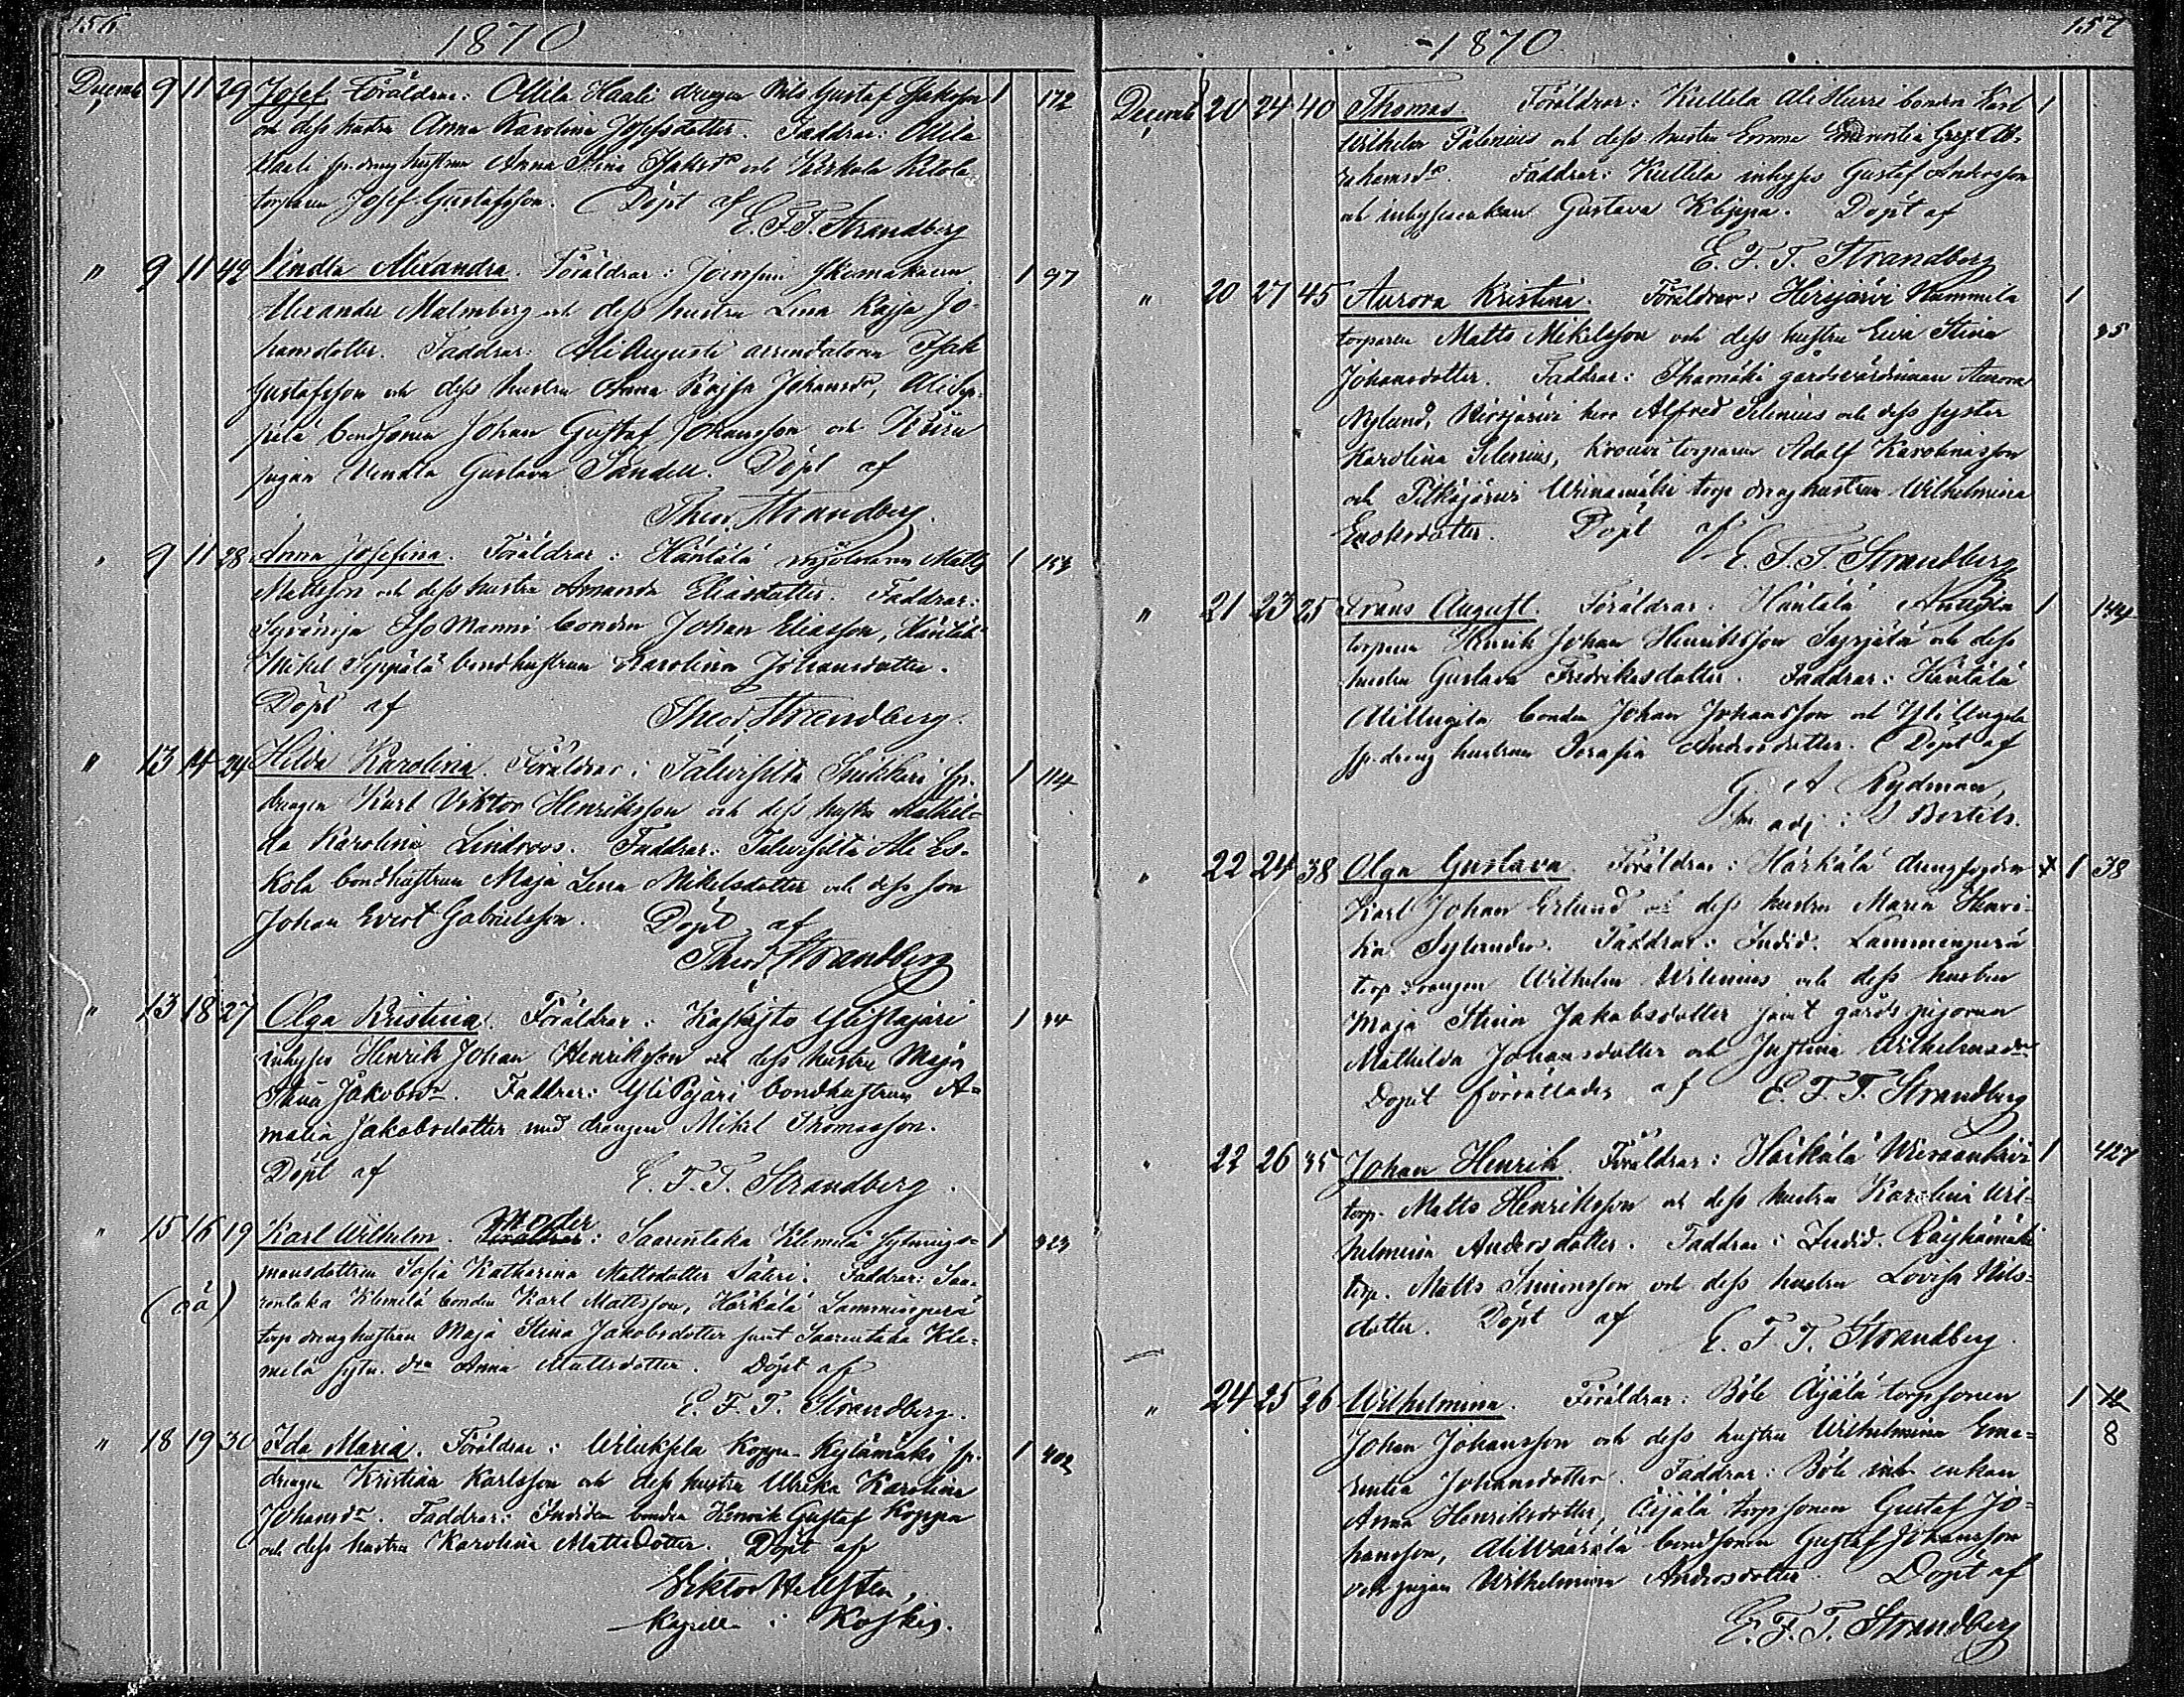 156
1870
Decemb 9 11 29 Josef Föräldrar: Ollila Haali drengen Nils Gustaf Isaksson 1 172
och dess hustru Anna Karolina Josefsdotter. Faddrar: Ollila
Haali sp. dreng hustrun Anna Stina Isaksdr och Kerkola Kitola
torparen Josef Gustafsson. Döpt af
E. F. T. Strandberg
" 9 11 42 Vendla Alexandra. Föräldrar: Joensuu skomakaren 1 97
Alexander Malmberg och dess hustru Lena Kajsa Jo-
hansdotter. Faddrar: Ali Augusti arrendatorn Isak
Gustafsson och dess hustru Anna Kajsa Johansdr, Ali Sep-
pilä bondsonen Johan Gustaf Johansson och
pigan Vendla Gustava Sandell. Döpt af
Theod. Strandberg.
" 9 11 28 Anna Josefina. Föräldrar: Häntälä mjölnaren Matts 1 153
Mattsson och dess hustru Amanda Eliasdotter. Faddrar:
Syvänoja Iso Manni bonden Johan Eliasson, Häntälä
Mikel Seppälä bondhustrun Karolina Johansdotter.
Döpt af
Theod. Strandberg.
" 13 14 24 Hilda Karolina. Föräldrar: Talvisilta sp. 1 114
drengen Karl Viktor Henriksson och dess hustru Mathil-
da Karolina Lindroos. Faddrar: Talvisilta Ali Es-
kola bondhustrun Maja Lena Mikelsdotter och dess son
Johan Evert Gabrielsson. Döpt af
Theod. Strandberg
" 13 18 27 Olga Kristina. Föräldrar: Kaskisto 1 34
inhyses Henrik Johan Henriksson och dess hustru Maja
Stina Jakobsdr. Faddrar: Yli Pajari bondhustrun A-
malia Jakobsdotter med drengen Mikel Thomasson.
Döpt af
E. F. T. Strandberg.
" 15 16 19 Karl Wilhelm. Moder: Saarentaka Klemelä sytnings- 1 323
mansdottren Sofia Katharina Mattsdotter Säteri. Faddrar: Saa-
(oä) rentaka Klemelä bonden Karl Mattsson, Härkälä Lammenperä
torp drenghustrun Maja Stina Jakobsdotter samt Saarentaka Kle-
melä sytn. dra Anna Mattsdotter. Döpt af
E. F. T. Strandberg.
" 18 19 30 Ida Maria. Föräldrar: Wiluksela Koppa Kylämäki sp. 1 402
drengen Kristian Karlsson och dess hustru Ulrika Karolina
Johansdr. Faddrar: Ibidem bonden Henrik Gustaf Koppa
och dess hustru Karolina Mattsdotter. Döpt af
Viktor Hellsten,
Kapell. i Koskis.
157
1870
Decemb 20 24 40 Thomas Föräldrar: Kuttila Ali Hurri bonden Karl 1
Wilhelm Palenius och dess hustru Emma Gust. Ab-
rahamsdr. Faddrar: Kuttila inhyses Gustaf Andersson
och inhysesenkan Gustava Klippa. Döpt af
E. F. T. Strandberg
" 20 27 45 Aurora Kristina. Föräldrar: Hirsjärvi Kummila 1 35
torparen Matts Mikelsson och dess hustru Eva Stina
Johansdotter. Faddrar: Ihamäki gårdsvärdinnan Aurora
Nylund, Hirsjärvi herr Alfred Selenius och dess syster
Karolina Selenius, Krouvi torparen Adolf Karolinasson
och Pitkäjärvi Weinamäki torp drenghustrun Wilhelmina
Enoksdotter. Döpt af
E. F. T. Strandberg
" 21 23 25 Frans August. Föräldrar: Häntälä Anugila 1 144
torparen Henrik Johan Henriksson Syrjälä och dess
hustru Gustava Fredriksdotter. Faddrar: Häntälä
Ali Anugila bonden Johan Johansson och Yli Anugila
sp. dreng hustrun Serafia Andersdotter. Döpt af
G. A. Rydman,
adj. i S. Bertils.
" 22 24 38 Olga Gustava. Föräldrar: Härkälä drengfogden + 1 38
Karl Johan Erlund och dess hustru Maria Henri-
ka Sylander. Faddrar: Ibid. Lammenperä
torp drengen Wilhelm Wilenius och dess hustru
Maja Stina Jakobsdotter samt gårds pigorna
Mathilda Johansdotter och Justina Wilhelmsdr
Dopet förrättades af E. F. T. Strandberg
" 22 26 35 Johan Henrik. Föräldrar: Härkälä 1 427
torp. Matts Henriksson och dess hustru Karolina Wil-
helmina Andersdotter. Faddrar: Ibid. Räyhämäki
torp. Matts Simonsson och dess hustru Lovisa Nils-
dotter. Döpt af
E. F. T. Strandberg.
" 24 25 26 Wilhelmina. Föräldrar: Böle Äijälä torpsonen 1 12
8
Johan Johansson och dess hustru Wilhelmina Eme-
rentia Johansdotter. Faddrar: Böle inh. enkan
Anna Henriksdotter, Äijälä torpsonen Gustaf Jo-
hansson, Ali Wäärälä bondsonen Gustaf Johansson
och pigan Wilhelmina Andersdotter. Döpt af
E. F. T. Strandberg